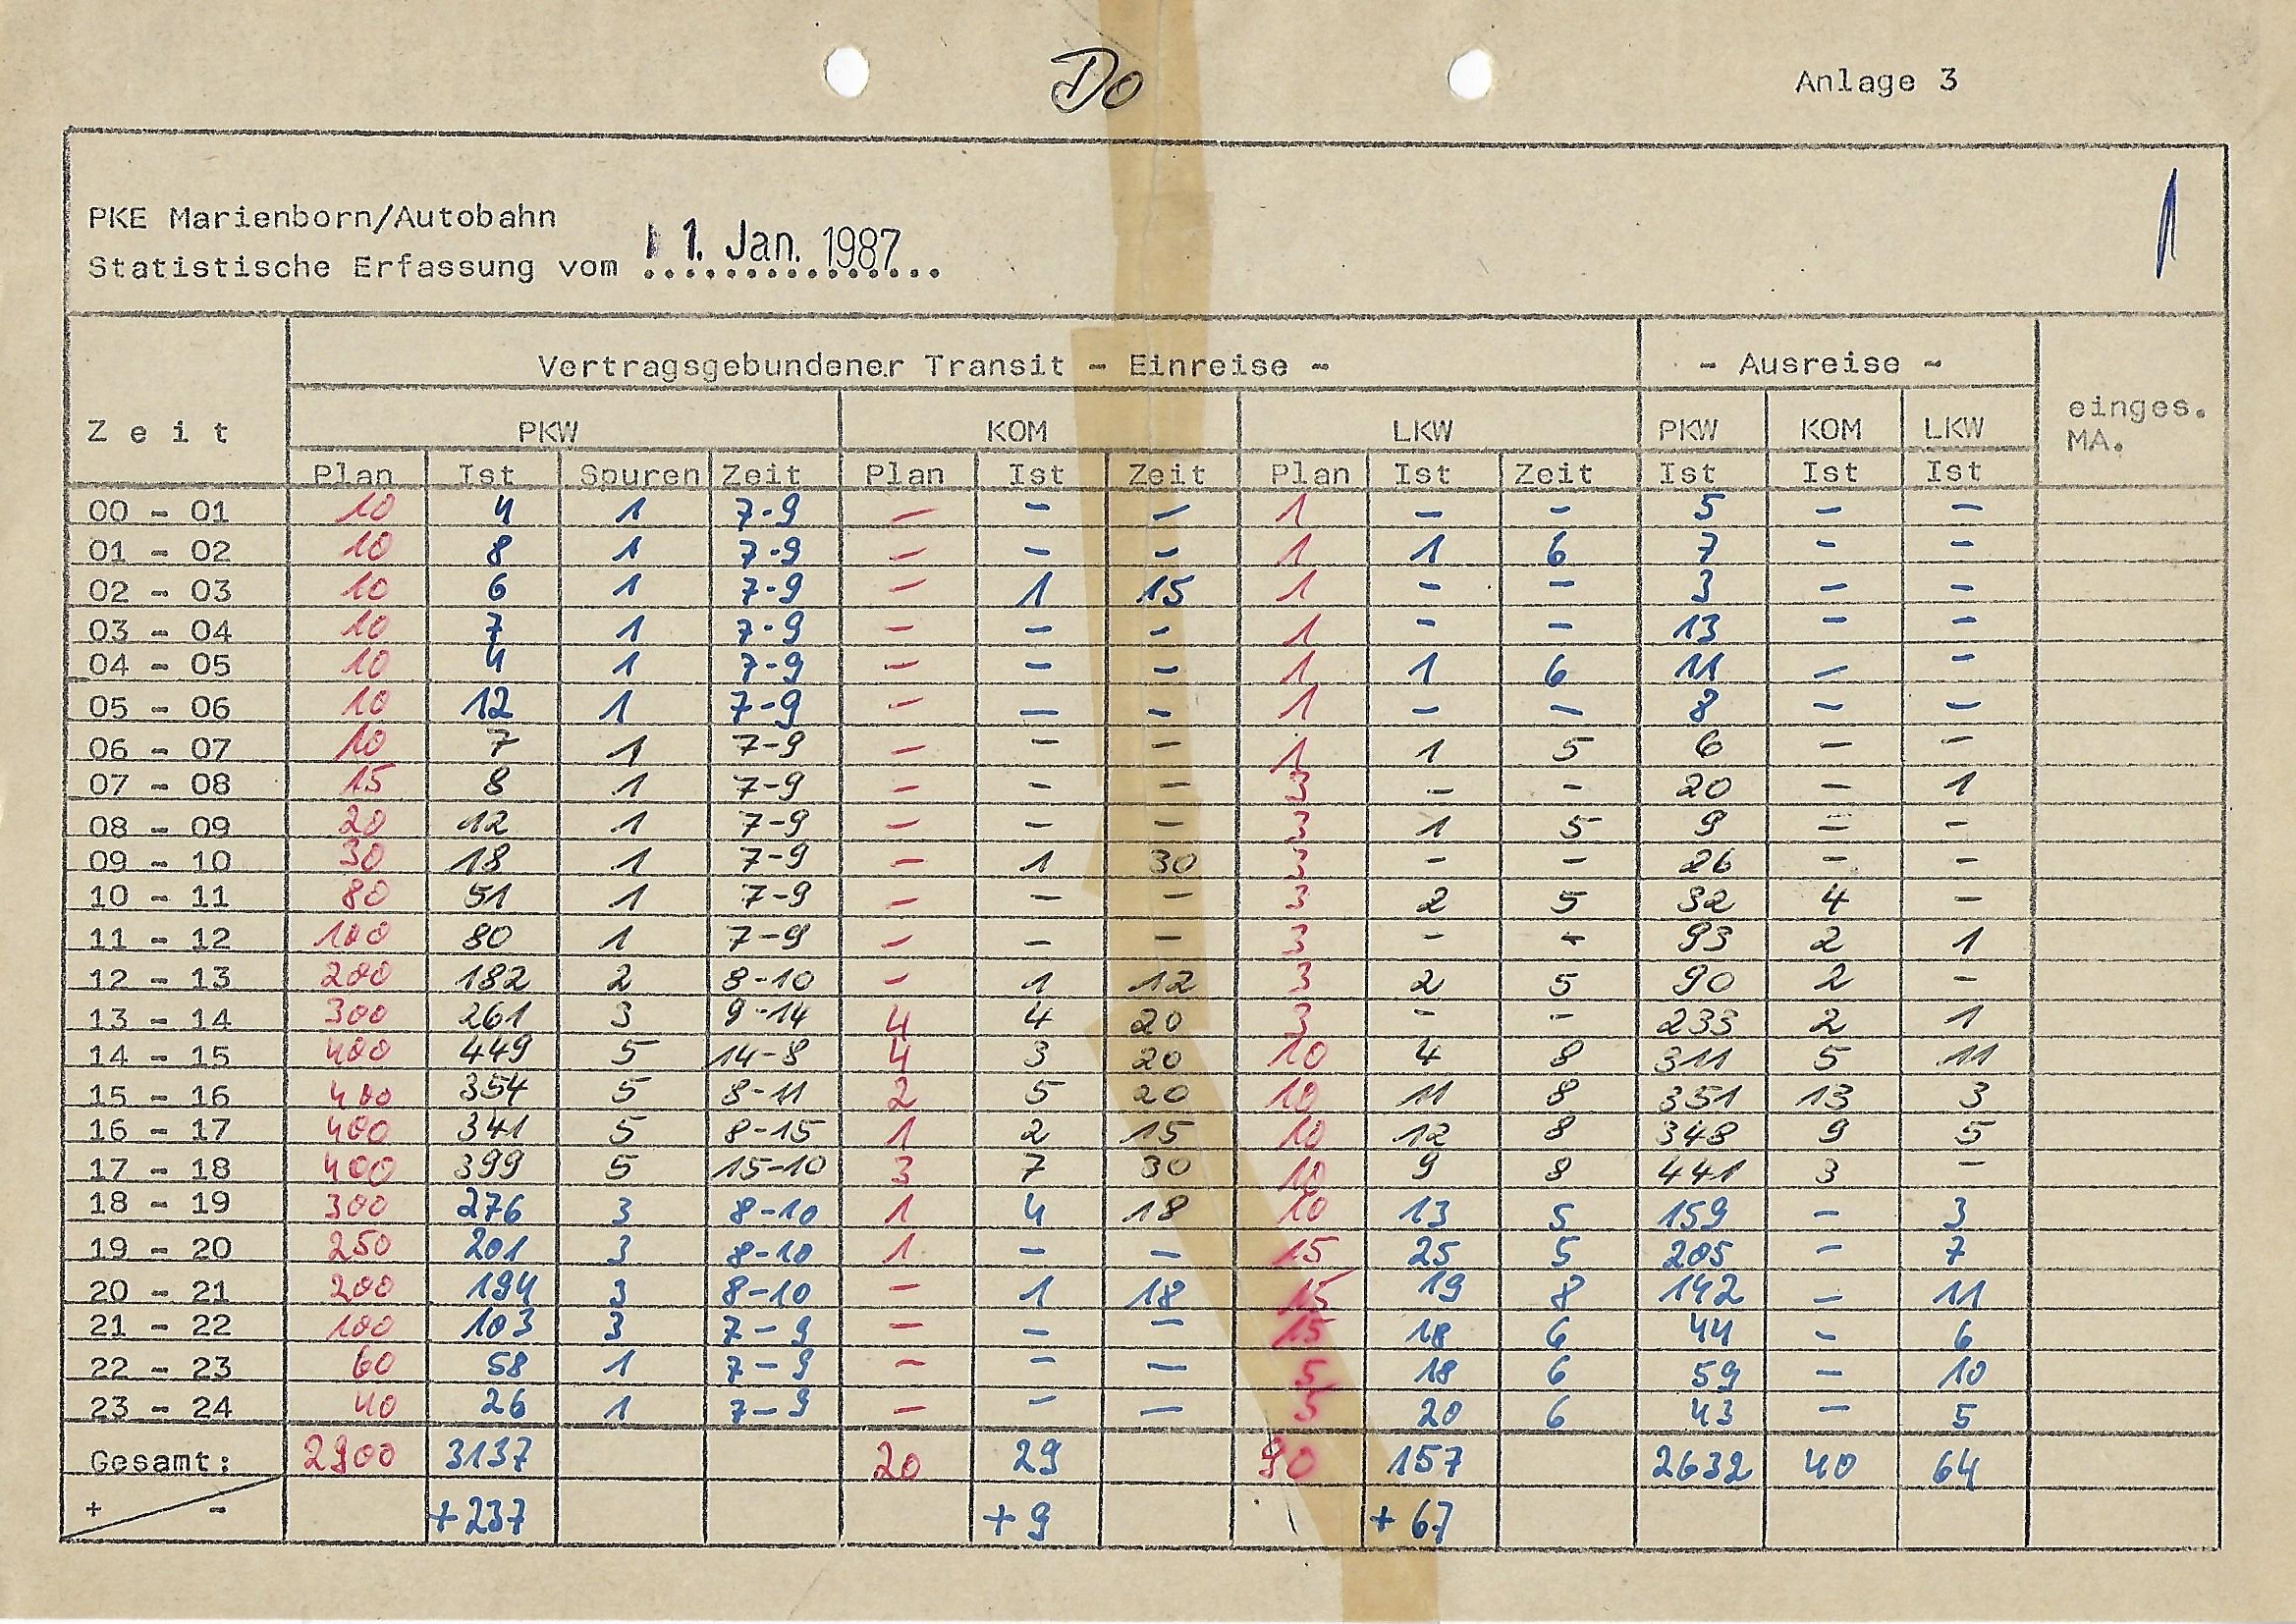 Do
Anlage 3
1
PKE Marienborn/Autobahn
Statistische Erfassung vom 1. Jan. 1987
Vertragsgebundener Transit - Einreise - - Ausreise -
Zeit PKW KOM LKW PKW KOM LKW einges. MA.
Plan Ist Spuren Zeit Plan Ist Zeit Plan Ist Zeit Ist Ist Ist
00 - 01 10 4 1 7-9 - - - 1 - - 5 - -
01 - 02 10 8 1 7-9 - - - 1 1 6 7 - -
02 - 03 10 6 1 7-9 - 1 15 1 - - 3 - -
03 - 04 10 7 1 7-9 - - - 1 - - 13 - -
04 - 05 10 4 1 7-9 - - - 1 1 6 11 - -
05 - 06 10 12 1 7-9 - - - 1 - - 8 - -
06 - 07 10 7 1 7-9 - - - 1 1 5 6 - -
07 - 08 15 8 1 7-9 - - - 3 - - 20 - 1
08 - 09 20 12 1 7-9 - - - 3 1 5 9 - -
09 - 10 30 18 1 7-9 - 1 30 3 - - 26 - -
10 - 11 80 51 1 7-9 - - - 3 2 5 32 4 -
11 - 12 100 80 1 7-9 - - - 3 - - 93 2 1
12 - 13 200 182 2 8-10 - 1 12 3 2 5 90 2 -
13 - 14 300 261 3 9-14 4 4 20 3 - - 233 2 1
14 - 15 400 449 5 14-8 4 3 20 10 4 8 311 5 11
15 - 16 400 354 5 8-11 2 5 20 10 11 8 351 13 3
16 - 17 400 341 5 8-15 1 2 15 10 12 8 348 9 5
17 - 18 400 399 5 15-10 3 7 30 10 9 8 441 3 -
18 - 19 300 276 3 8-10 1 4 18 10 13 5 159 - 3
19 - 20 250 201 3 8-10 1 - - 15 25 5 205 - 7
20 - 21 200 194 3 8-10 - 1 18 15 19 8 142 - 11
21 - 22 100 103 3 7-9 - - - 15 18 6 44 - 6
22 - 23 60 58 1 7-9 - - - 5 18 6 59 - 10
23 - 24 40 26 1 7-9 - - - 5 20 6 43 - 5
Gesamt: 2900 3137 20 29 90 157 2632 40 64
+ - +237 +9 +67